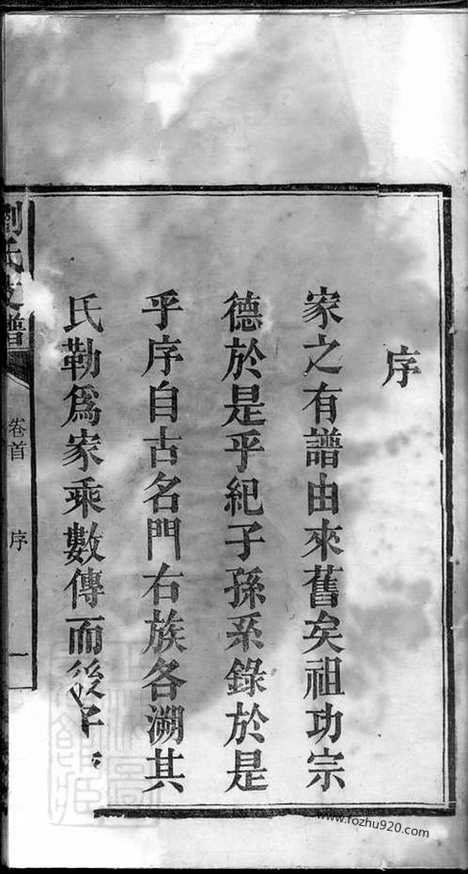 序
家之有譜由來舊矣祖功宗
德於是乎紀子孫系錄於是
乎序自古名門右族各溯其
氏勒爲家乘數傳而後子
劉氏支譜
卷首
序
一
www.fozhu920.com